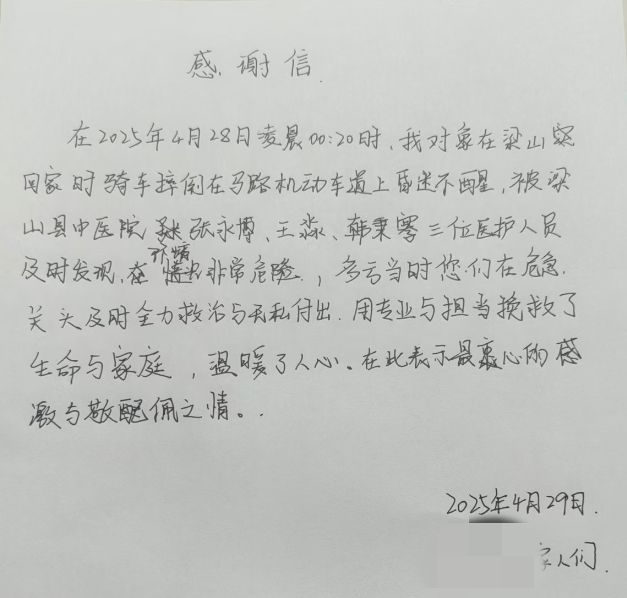 感谢信
在2025年4月28日凌晨00:20时，我对象在梁山
回家时骑车摔倒在马路机动车道上昏迷不醒，被梁
山县中医院 张永博、王淼、韩秉零三位医护人员
及时发现，在 非常危险，多亏当时您们在危急
关头及时全力救治与无私付出，用专业与担当挽救了
生命与家庭，温暖了人心。在此表示最衷心的感
激与敬佩之情。
2025年4月29日.
家人们.